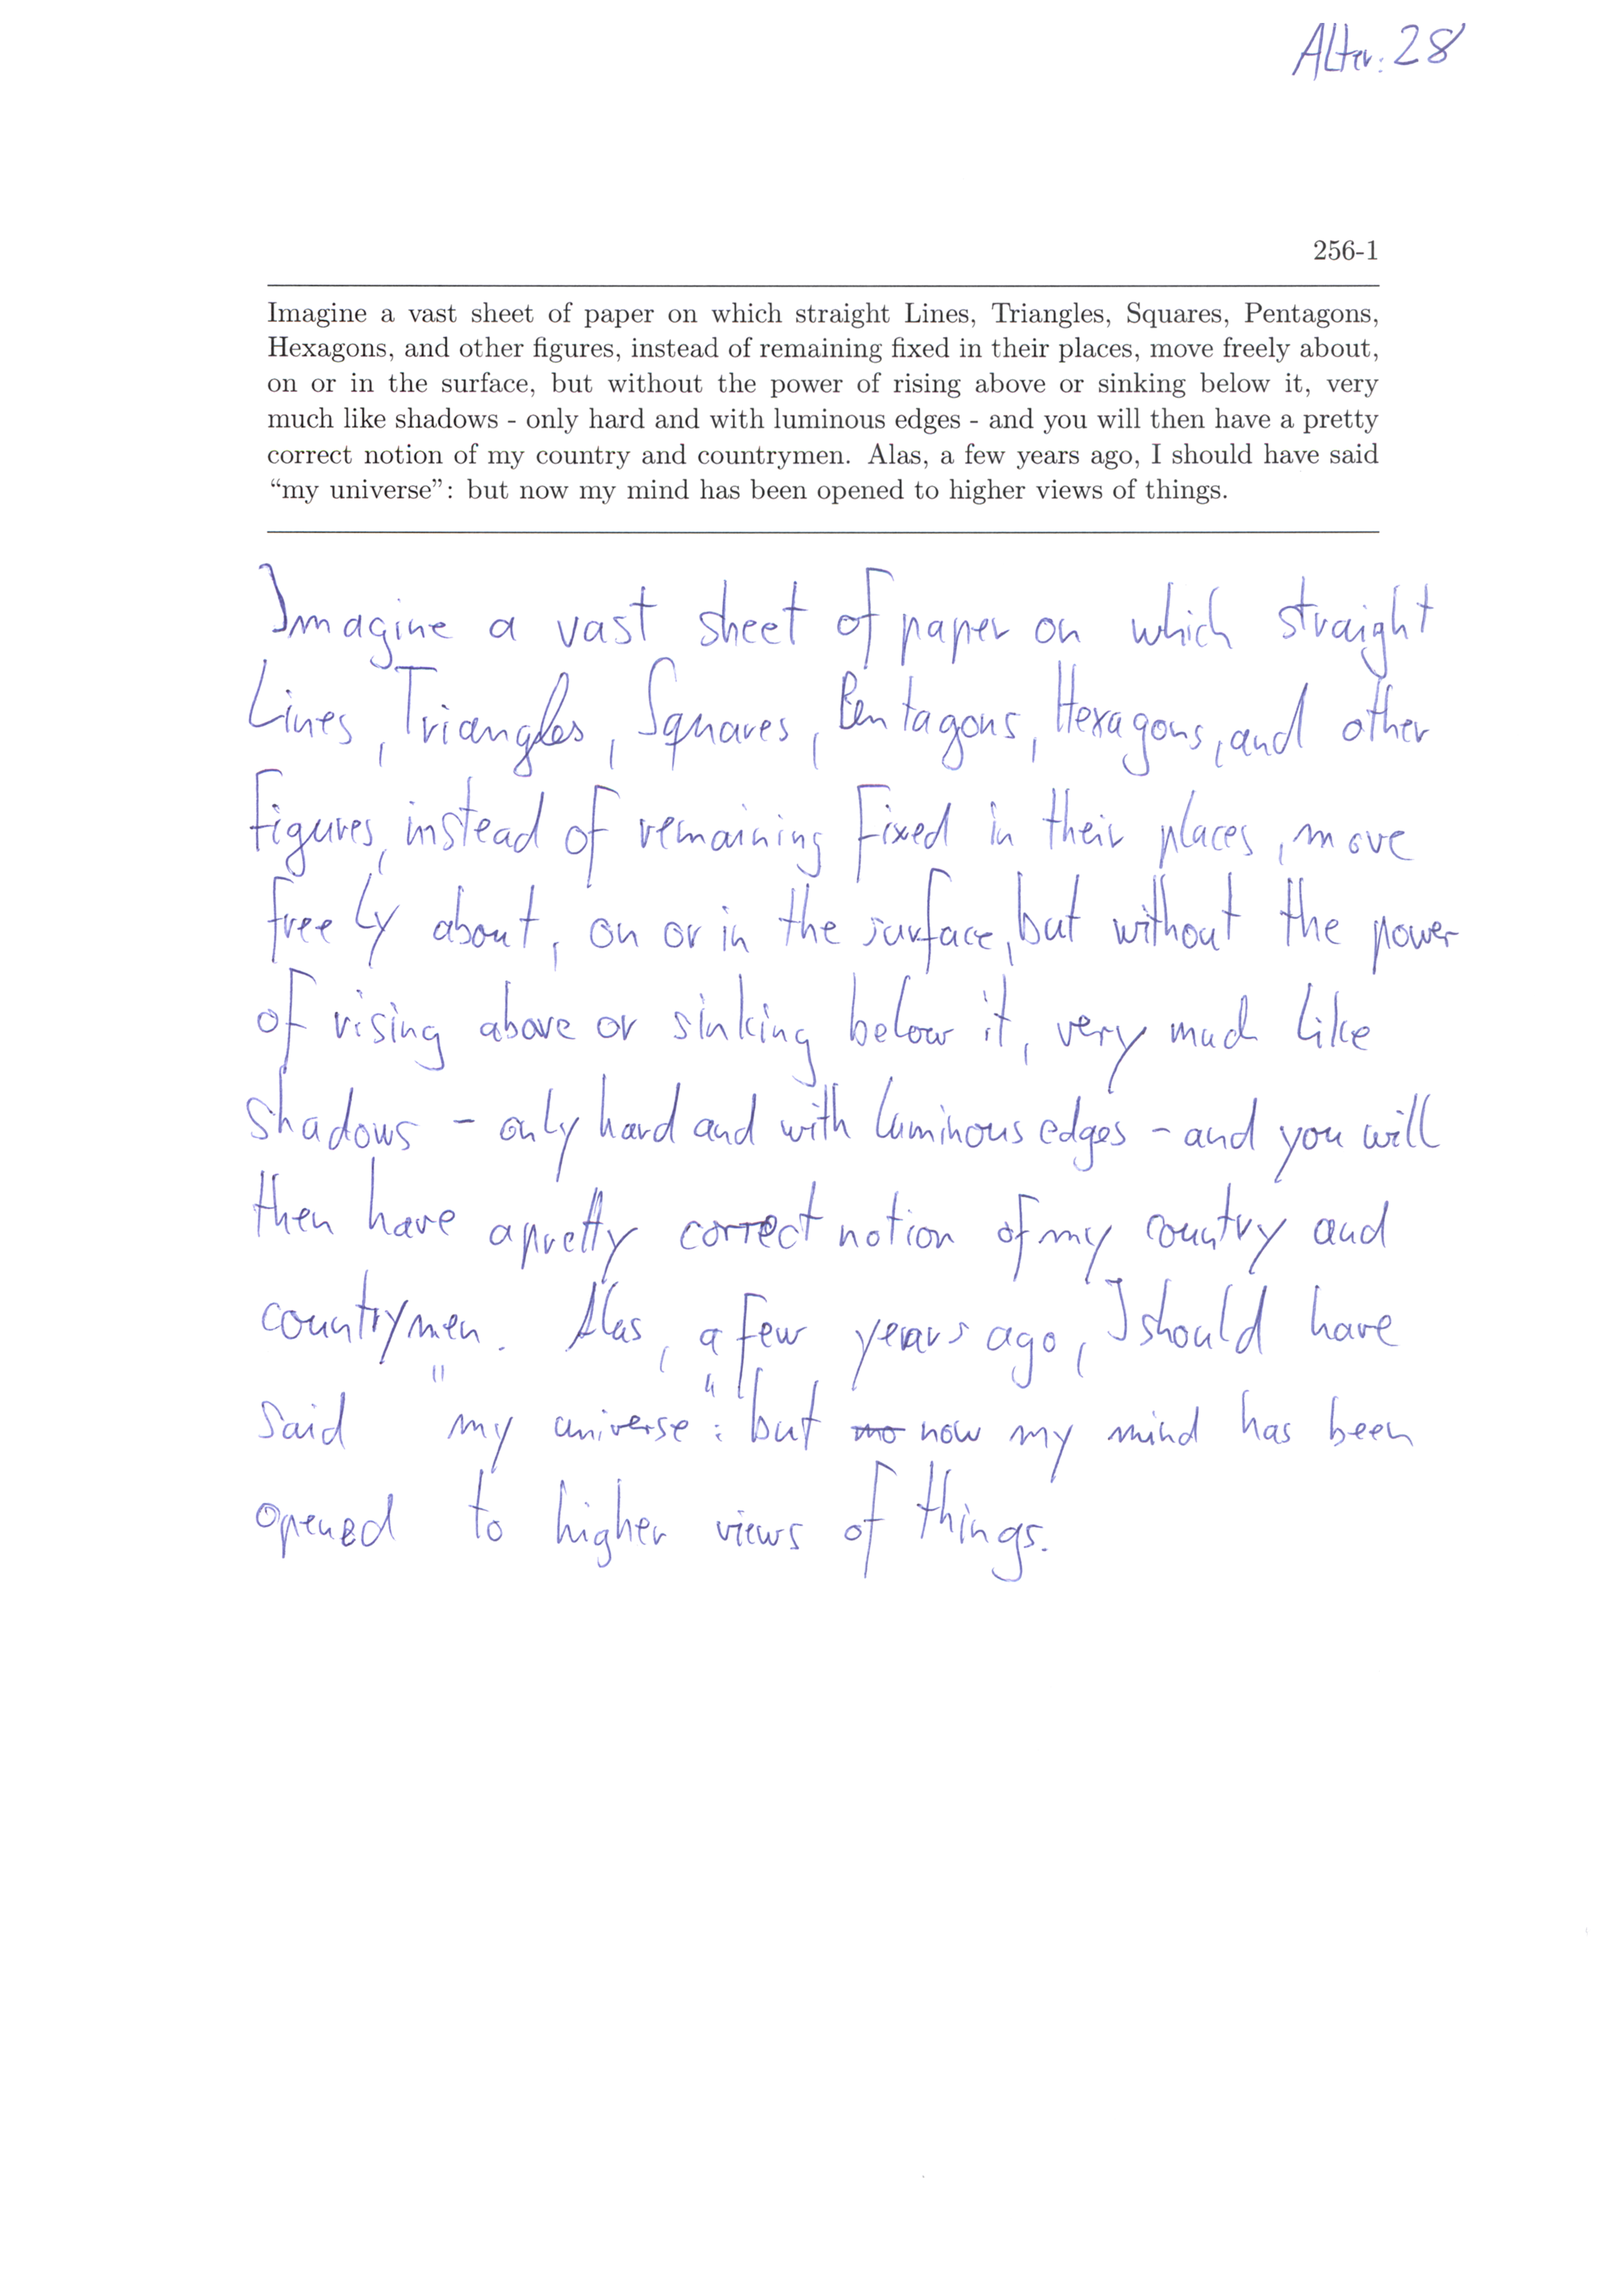 Alter: 28
256-1
Imagine a vast sheet of paper on which straight Lines, Triangles, Squares, Pentagons,
Hexagons, and other figures, instead of remaining fixed in their places, move freely about,
on or in the surface, but without the power of rising above or sinking below it, very
much like shadows - only hard and with luminous edges - and you will then have a pretty
correct notion of my country and countrymen. Alas, a few years ago, I should have said
“my universe”: but now my mind has been opened to higher views of things.
Imagine a vast sheet of paper on which straight
Lines, Triangles, Squares, Pentagons, Hexagons, and other
figures, instead of remaining fixed in their places, move
freely about, on or in the surface, but without the power
of rising above or sinking below it, very much like
shadows - only hard and with luminous edges - and you will
then have a pretty correct notion of my country and
countrymen. Alas, a few years ago, I should have
said "my universe": but mo now my mind has been
opened to higher views of things.